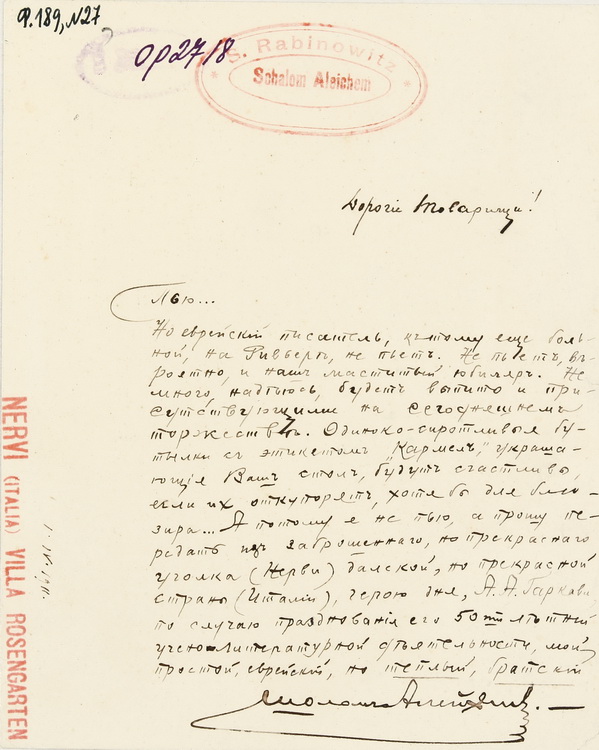 Ф.189, N27
Ор27/8
S. Rabinowitz
Schalom Aleichem
Дорогіе Товарищи!
Пью...
Но еврейскій писатель, къ тому еще боль-
ной, на Ривьерѣ, не пьетъ. Не пьетъ, вѣ-
роятно, и нашъ маститый юбиляръ. Не
много, надѣюсь, будетъ выпито и при-
сутствующими на сегоднешнемъ
торжествѣ. Одиноко-сиротливыя бу-
тылки съ этикетомъ „Кармелъ", украша-
ющія Вашъ столъ, будутъ счастливы,
если их откупорятъ, хотя бы для бли-
зира... А потому я не пью, а прошу пе-
редать изъ заброшеннаго, но прекраснаго
уголка (Нерви) далекой, но прекрасной
страны (Италіи), герою дня, А. А. Гаркави,
по случаю празднованія его 50тилѣтней
учено-литературной дѣятельности, мой
простой, еврейскій, но теплый, братскій
Шоломъ-Алейхемъ. —
NERVI (ITALIA) VILLA ROSENGARTEN